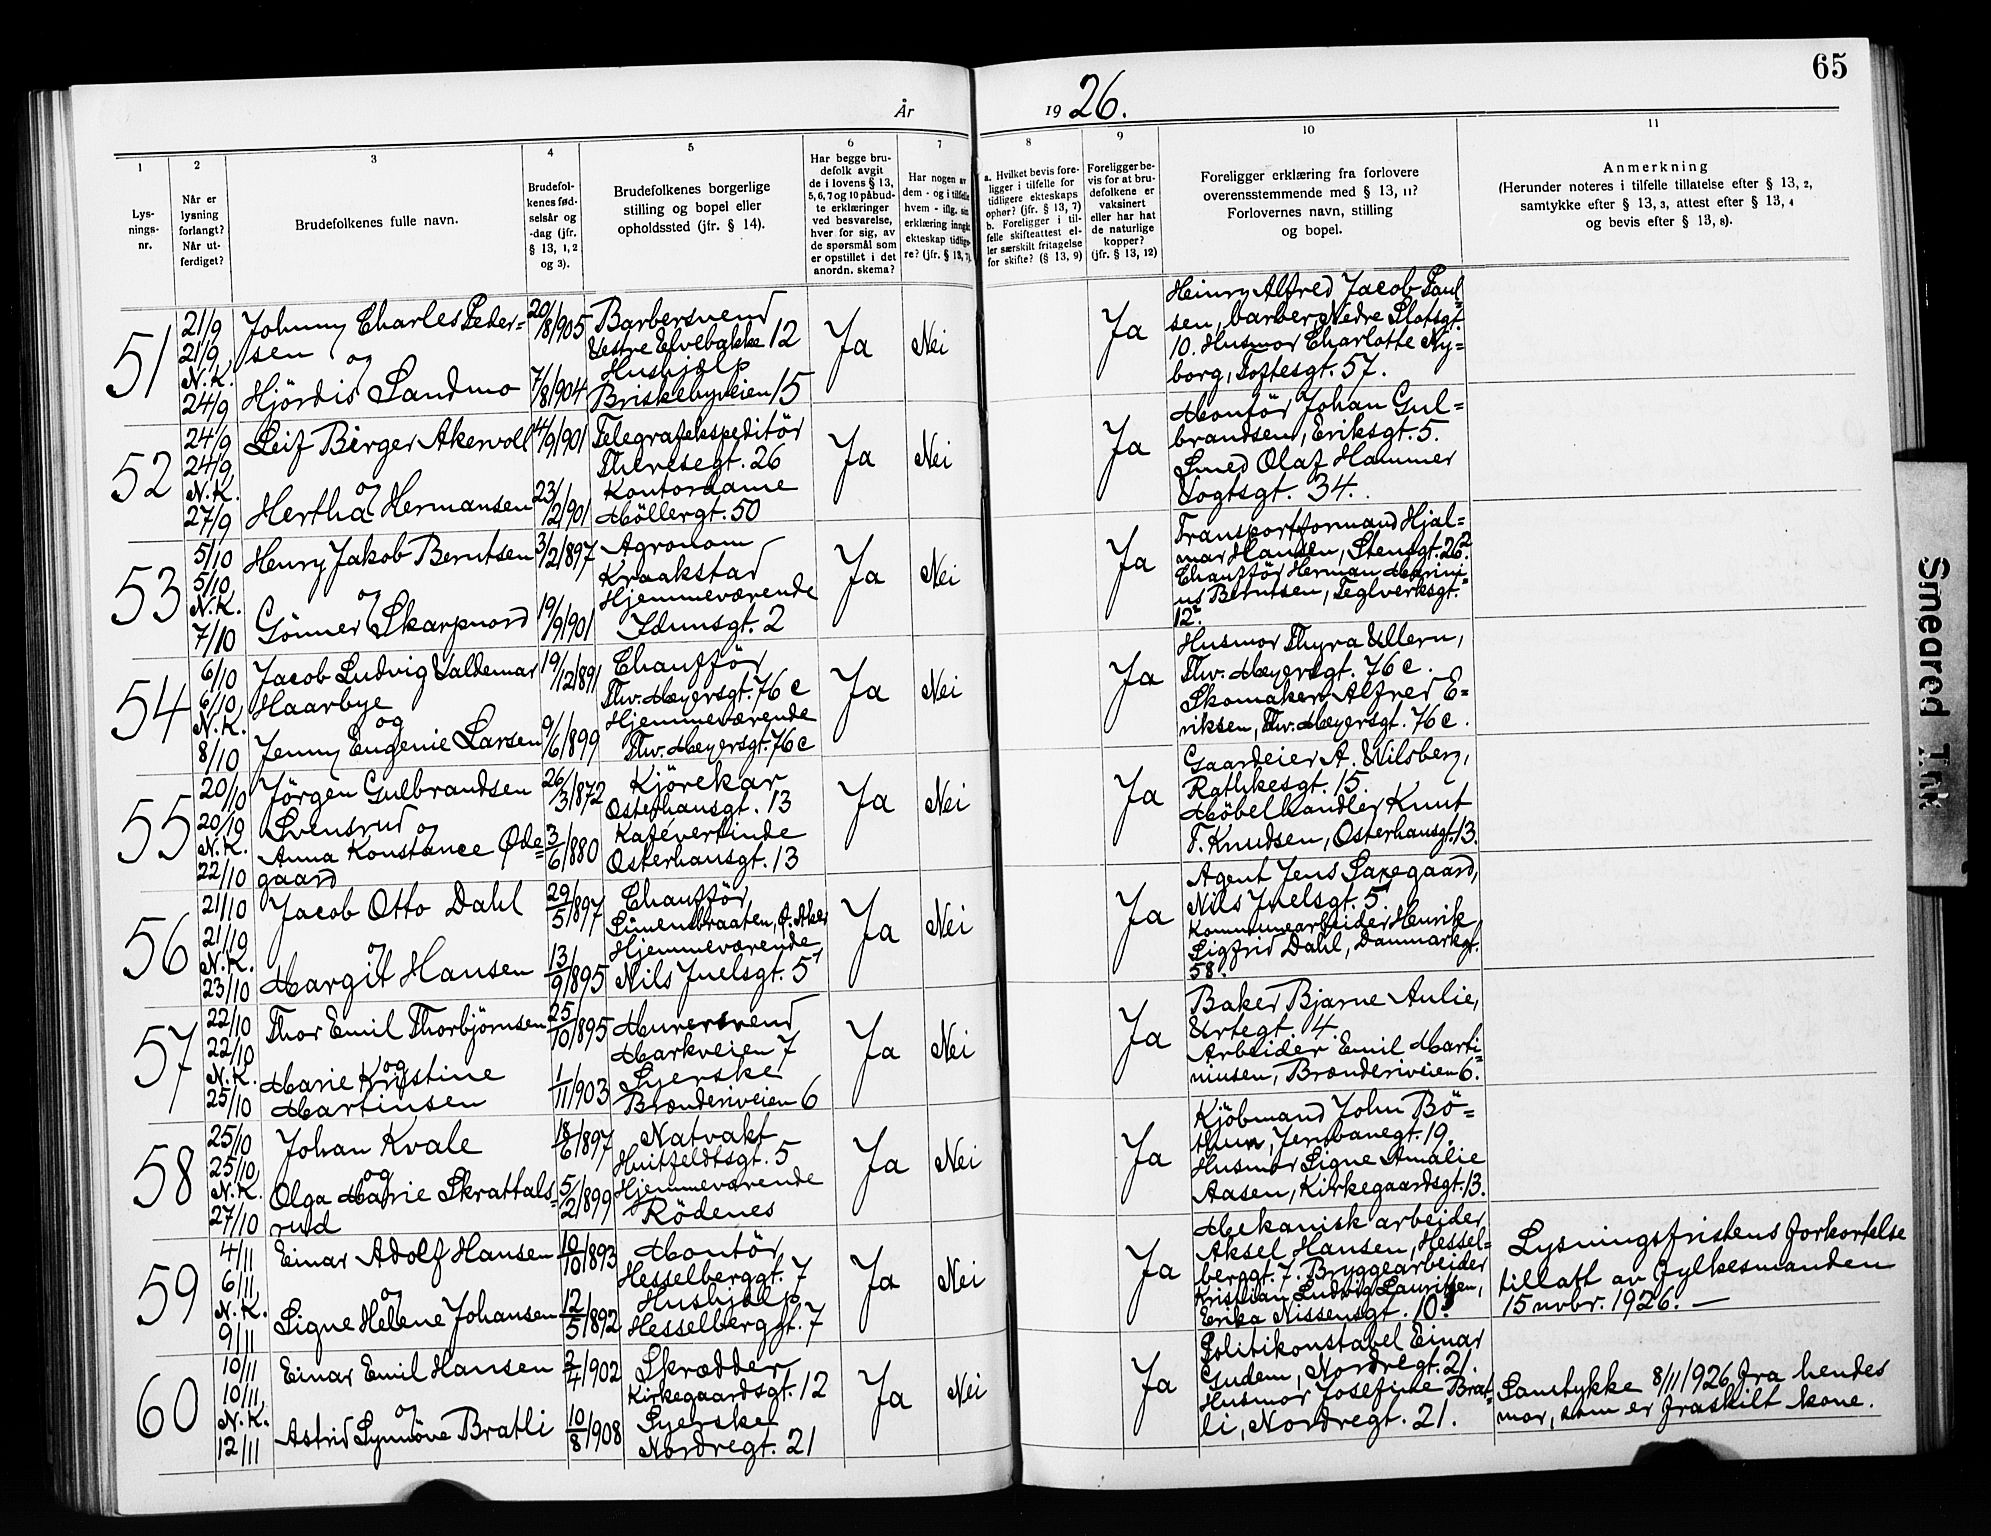 65
År 1926.
1
Lys-
nings-
nr.
2
Når er
lysning
forlangt?
Når ut-
ferdiget?
3
Brudefolkenes fulle navn.
4
Brudefol-
kenes fød-
selsår og
-dag (jfr.
§ 13, 1, 2
og 3).
5
Brudefolkenes borgerlige
stilling og bopel eller
opholdssted (jfr. § 14).
6
Har begge bru-
defolk avgit
de i lovens § 13,
5, 6, 7 og 10 påbud-
te erklæringer
ved besvarelse,
hver for sig, av
de spørsmål som
er opstillet i det
anordn. skema?
7
Har nogen av
dem - og i tilfelle
hvem - iflg. sin
erklæring inngått
ekteskap tidlige-
re? (jfr. § 13, 7).
8
a. Hvilket bevis fore-
ligger i tilfelle for
tidligere ekteskaps
ophør? (jfr. § 13, 7)
b. Foreligger i til-
felle skifteattest el-
ler særskilt fritagelse
for skifte? (§ 13, 9)
9
Foreligger be-
vis for at bru-
defolkene er
vaksinert
eller har hat
de naturlige
kopper?
(jfr. § 13, 12)
10
Foreligger erklæring fra forlovere
overensstemmende med § 13, 11?
Forlovernes navn, stilling
og bopel.
11
Anmerkning
(Herunder noteres i tilfelle tillatelse efter § 13, 2,
samtykke efter § 13, 3, attest efter § 13, 4
og bevis efter § 13, 8).
51
21/9
21/9
N.K.
24/9
Johnny Charles Peder-
sen og
Hjördis Sandmo
20/8 1905
7/8 1904
Barbersvend
Vestre Elvebakke 12
Hushjælp
Briskebyveien 15
Ja
Nei
Ja
Heinry Alfred Jacob Paul-
sen, barber, Nedre Slotsgt.
10. Husmor Charlotte Ny-
borg, Toftesgt. 57.
52
24/9
24/9
N.K.
27/9
Leif Birger Akervoll
og
Hertha Hermansen
14/9 1901
23/2 1901
Telegrafekspeditör
Theresegt. 26
Kontordame
Möllergt. 50
Ja
Nei
Ja
Montör Johan Gul-
brandsen, Eriksgt. 5.
Smed Olaf Hammer
Vogtsgt. 34.
53
5/10
5/10
N.K.
7/10
Henry Jakob Berntsen
og
Gönner Skarpnord
3/2 1897
19/9 1901
Agronom
Kraakstad
Hjemmeværende
Idunsgt. 2
Ja
Nei
Ja
Transportformand Hjal-
mar Hansen, Stensgt. 26².
Chaufför Herman Marini-
us Berntsen, Teglverksgt.
12²
54
6/10
6/10
N.K.
8/10
Jacob Ludvig Valdemar
Haarbye
og
Jenny Eugenie Larsen
19/12 1891
9/6 1899
Chaufför
Thv. Meyersgt. 76 c
Hjemmeværende
Thv. Meyersgt. 76 c
Ja
Nei
Ja
Husmor Thyra Ullern,
Thv. Meyersgt. 76 c.
Skomaker Alfred E-
riksen, Thv. Meyersgt. 76 c.
55
20/10
20/10
N.K.
22/10
Jörgen Gulbrandsen
Svensrud og
Anna Konstance Øde-
gaard
26/3 1872
3/6 1880
Kjörekar
Osterhausgt. 13
Kafevertinde
Osterhausgt. 13
Ja
Nei
Ja
Gaardeier A. Nilsberg,
Rathkesgt. 15.
Möbelhandler Knut
F. Knudsen, Osterhausgt. 13.
56
21/10
21/10
N.K.
23/10
Jacob Otto Dahl
og
Margit Hansen
29/5 1897
13/9 1895
Chaufför
Simensbraaten, Ø. Aker
Hjemmeværende
Nils Juelsgt. 5¹
Ja
Nei
Ja
Agent Jens Saxegaard,
Nils Juelsgt. 5¹
Kommunearbeider Henrik
Sigfrid Dahl, Danmarkgt.
58.
57
22/10
22/10
N.K.
25/10
Thor Emil Thorbjörnsen
og
Marie Kristine
Martinsen
25/10 1895
1/11 1903
Murersvend
Markveien 7
Syerske
Brænderiveien 6
Ja
Nei
Ja
Baker Bjarne Aulie,
Urtegt. 4.
Arbeider Emil Marti-
niusen, Brænderiveien 6.
58
25/10
25/10
N.K.
27/10
Johan Kvale
og
Olga Marie Skrattals-
rud
18/6 1897
5/2 1899
Natvakt
Huitfeldtsgt. 5
Hjemmeværende
Rödenes
Ja
Nei
Ja
Kjöbmand John Bö-
thun, Jernbanegt. 19.
Husmor Signe Amalie
Aasen, Kirkegaardsgt. 13.
59
4/11
6/11
N.K.
9/11
Einar Adolf Hansen
og
Signe Helene Johansen
10/10 1893
12/5 1892
Montör
Hesselberggt. 7
Hushjælp
Hesselberggt. 7
Ja
Nei
Ja
Mekanisk arbeider
Aksel Hansen, Hessel-
berggt. 7. Bryggearbeider
Kristian Ludvig Lauritsen,
Erika Nissensgt. 10.
Lysningsfristens forkortelse
tillatt av fylkesmanden
15 novbr. 1926. —
60
10/11
10/11
N.K.
12/11
Einar Emil Hansen
og
Astrid Synnöve Bratli
2/4 1902
10/8 1908
Skrædder
Kirkegaardsgt. 12
Syerske
Nordregt. 21
Ja
Nei
Ja
Politikonstabel Einar
Gudem, Nordregt. 21.
Husmor Josefine Brat-
li, Nordregt. 21.
Samtykke 8/11 1926 fra hendes
mor, som er fraskilt kone.
Smeared Ink